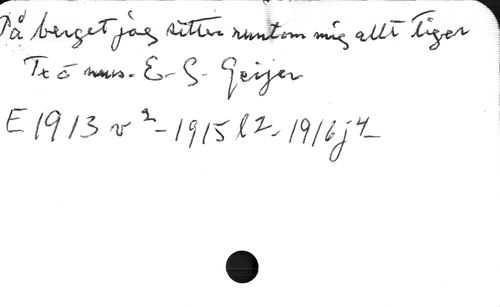 På berget jag sitter runtom mig allt tiger
Tx o mus. E. G. Geijer
E 1913 v 2 - 1915 l 2 - 1916 j 4